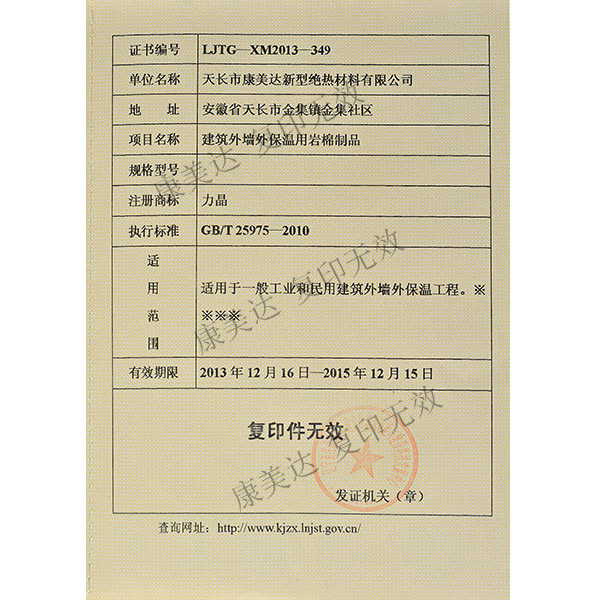 证书编号 LJTG—XM2013—349
单位名称 天长市康美达新型绝热材料有限公司
地 址 安徽省天长市金集镇金集社区
项目名称 建筑外墙外保温用岩棉制品
规格型号
注册商标 力晶
执行标准 GB/T 25975—2010
适用范围 适用于一般工业和民用建筑外墙外保温工程。※
※※※
有效期限 2013 年 12 月 16 日—2015 年 12 月 15 日
复印件无效
发证机关（章）
查询网址：http://www.kjzx.lnjst.gov.cn/
康美达 复印无效
康美达 复印无效
康美达 复印无效